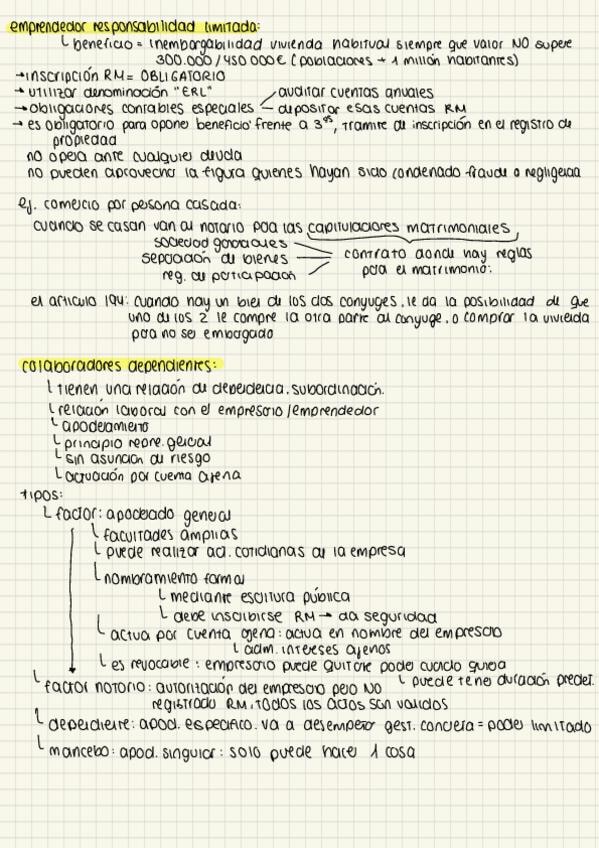 emprendedor responsabilidad limitada:
beneficio = inembargabilidad vivienda habitual siempre que valor NO supere
300.000 / 450 000€ (poblaciones + 1 millón habitantes)
→ inscripción RM = OBLIGATORIO
→ utilizar denominación "ERL" auditar cuentas anuales
→ obligaciones contables especiales depositar esas cuentas RM
→ es obligatorio para oponer beneficio frente a 3ºs, tramite de inscripción en el registro de
propiedad
no opera ante cualquier deuda
no pueden aprovechar la figura quienes hayan sido condenado fraude o negligencia
ej. comercio por persona casada:
cuando se casan van al notario para las capitulaciones matrimoniales
sociedad gananciales
separación de bienes contrato donde hay reglas
reg. de participación para el matrimonio.
el articulo 194: cuando hay un bien de los dos conyuges, le da la posibilidad de que
uno de los 2 le compre la otra parte al conyuge, o comprar la vivienda
para no ser embargado
colaboradores dependientes:
tienen una relación de dependencia, subordinación.
relación laboral con el empresario / emprendedor
apoderamiento
principio repre. gerencial
sin asunción de riesgo
actuación por cuenta ajena
tipos:
factor: apoderado general
facultades amplias
puede realizar act. cotidianas de la empresa
nombramiento formal
mediante escritura pública
debe inscribirse RM → da seguridad
actua por cuenta ajena: actua en nombre del empresario
adm. intereses ajenos
es revocable: empresario puede quitarle poder cuando quiera
puede tener duración predet.
factor notorio: autorización del empresario pero NO
registrado RM, todos los actos son validos
dependiente: apod. especifico. va a desempeñar gest. concreta = poder limitado
mancebo: apod. singular: solo puede hacer 1 cosa